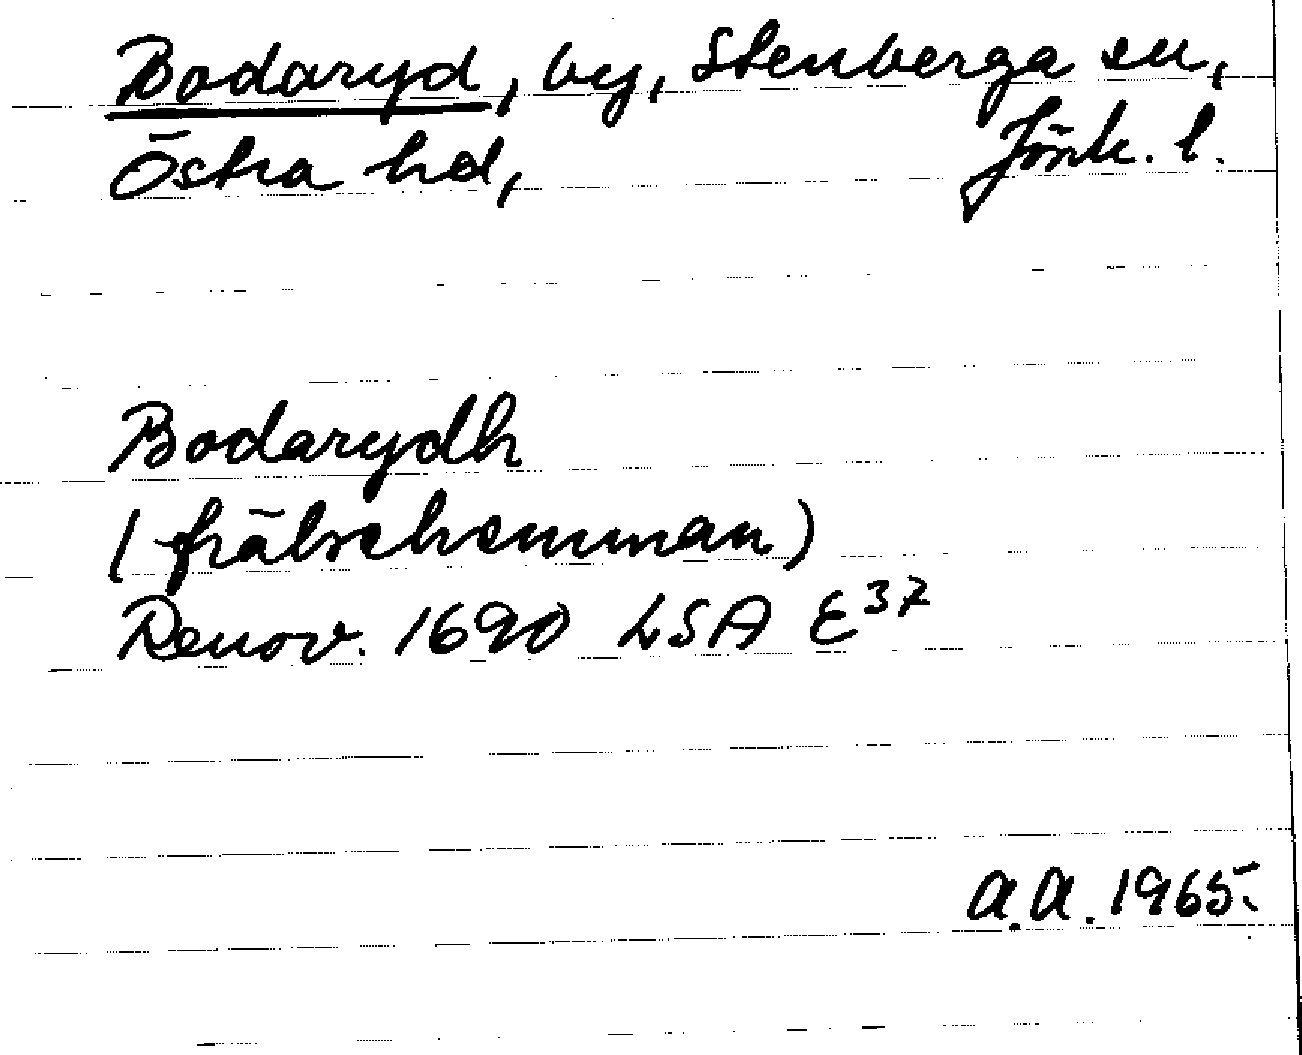 Bodaryd, by, Stenberga sn,
Östra hd, Jönk. l.
Bodarydh
(frälsehemman)
Renov. 1690 LSA E37
A.A. 1965.